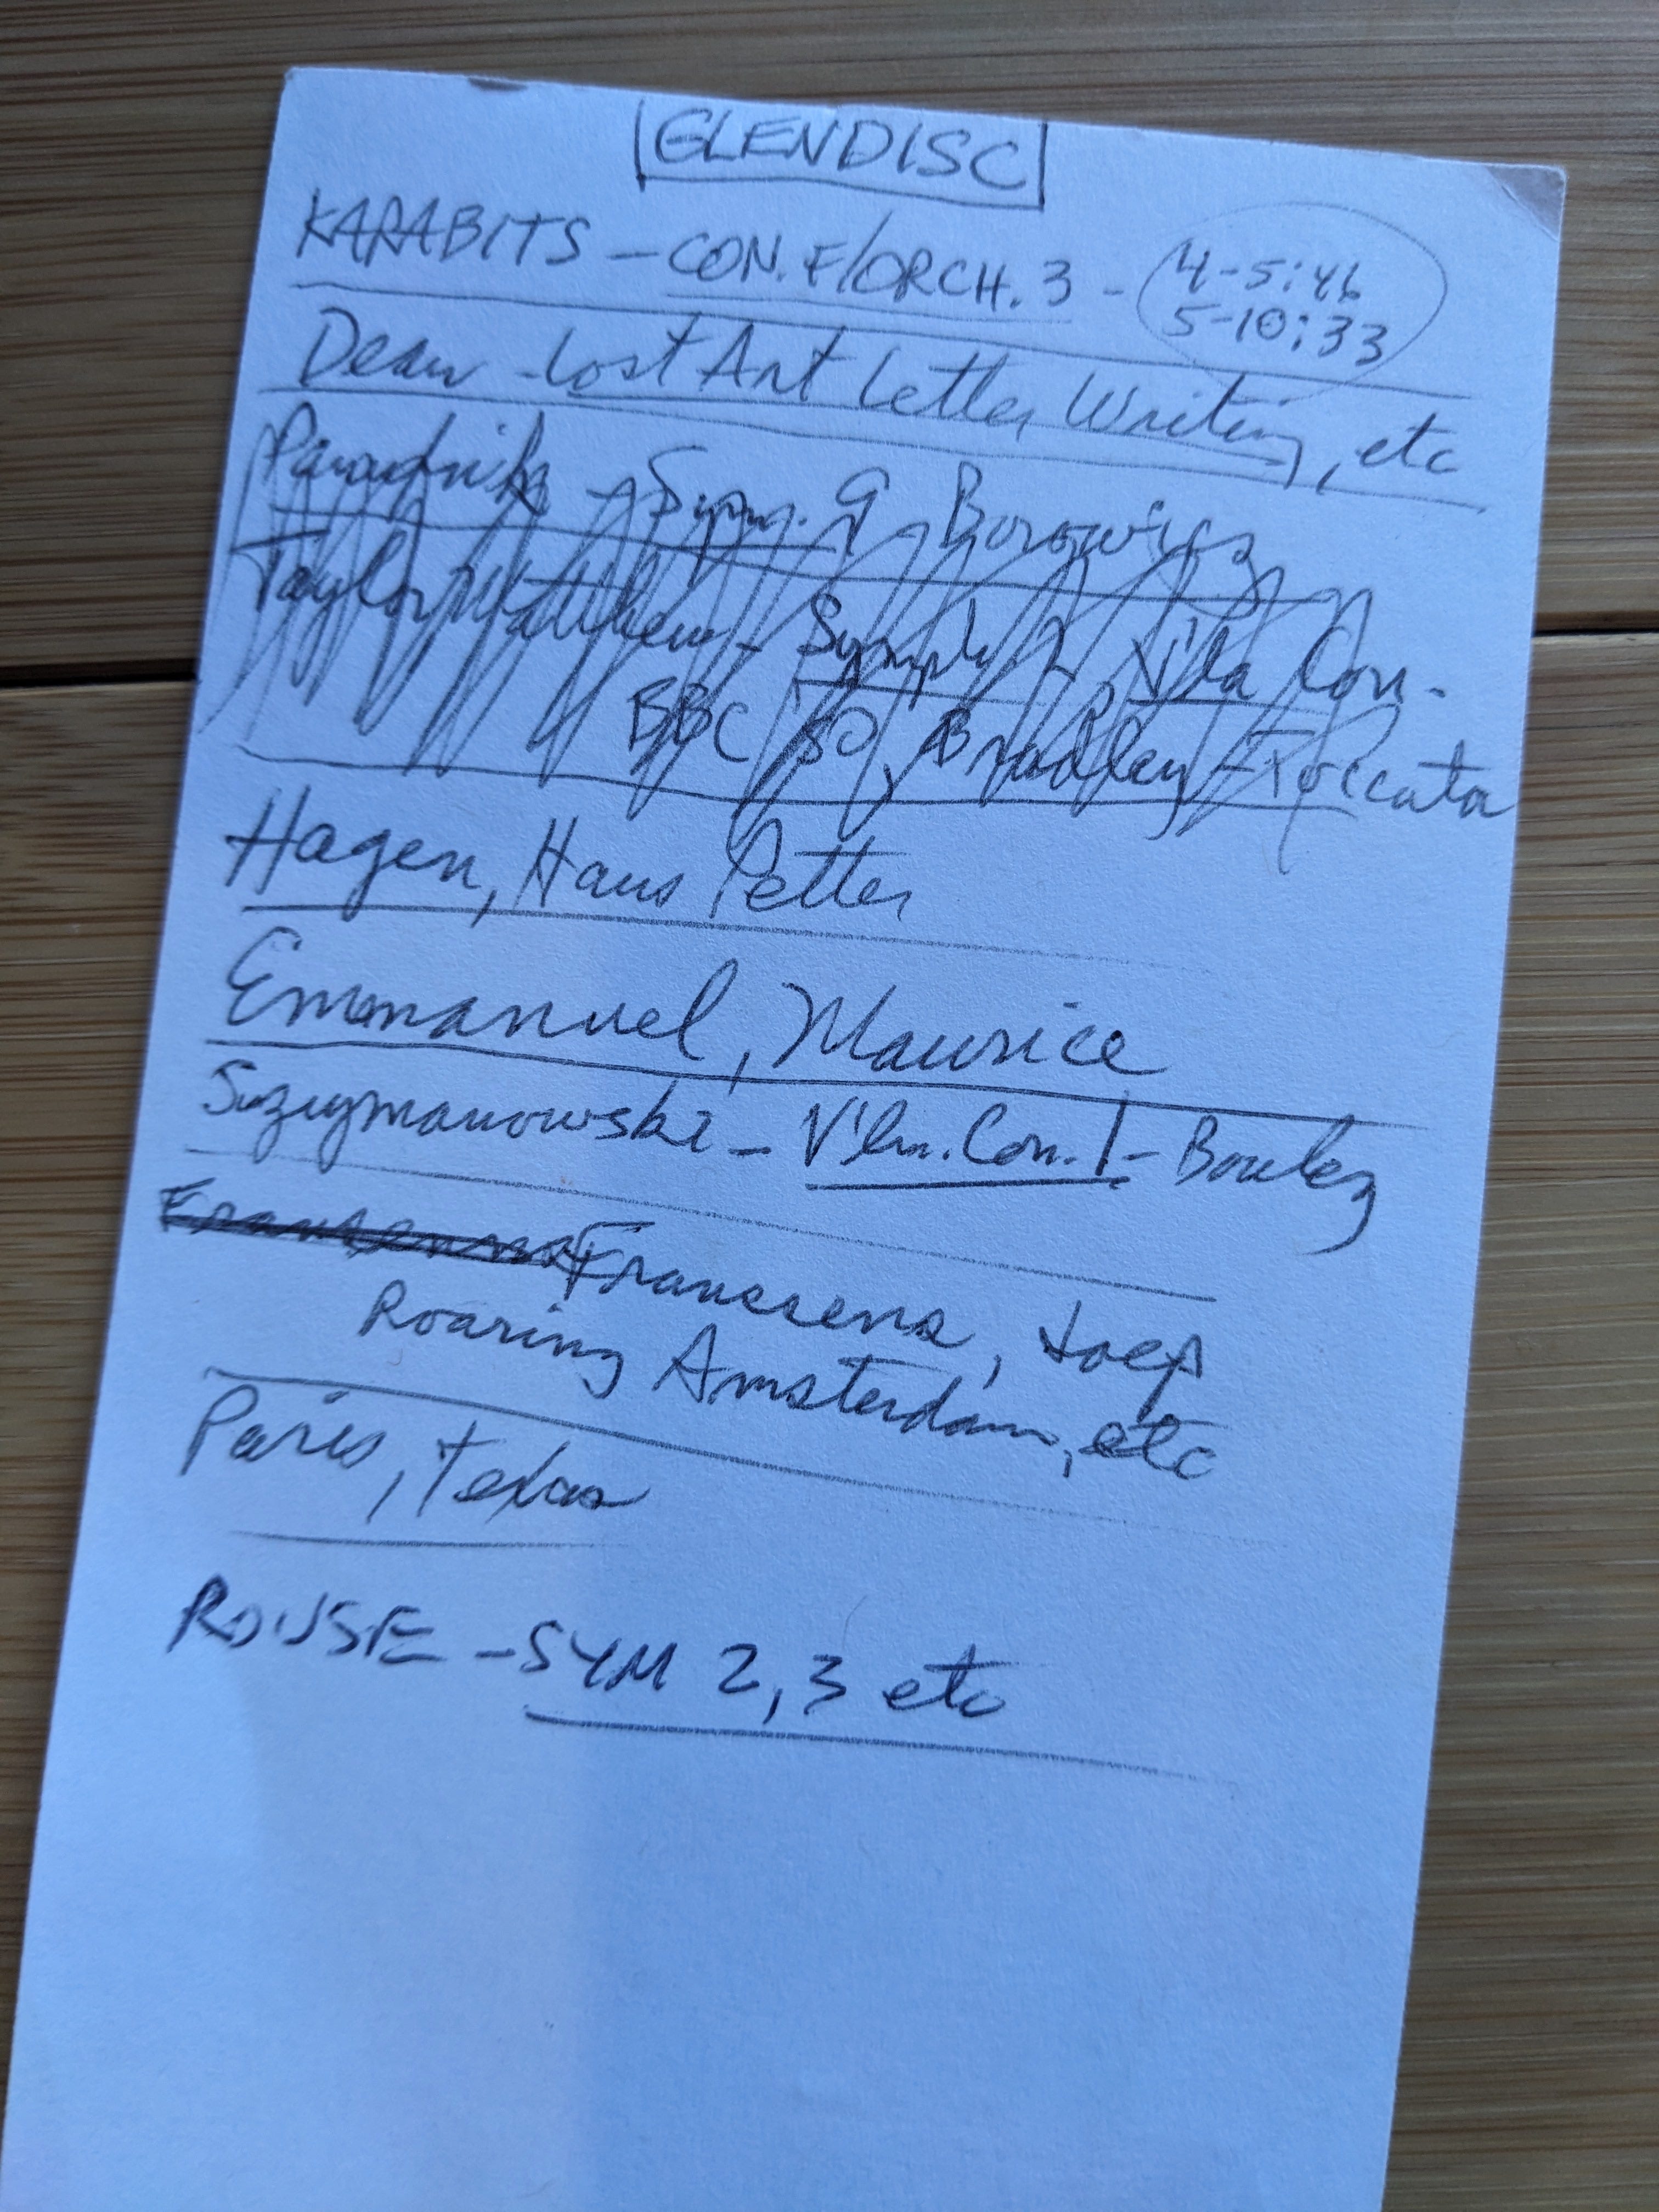 GLENDISC
KARABITS - CON. F/ORCH. 3 - 4-5:46
5-10:33
Dean - Lost Art Letter Writing, etc
Panufnik - Sym. 9 Borowicz
Taylor Matthew - Symph. 2 V'la Con.
BBC SO, Bradley - Toccata
Hagen, Hans Petter
Emmanuel, Maurice
Szzymanowski - V'ln. Con. 1 - Boulez
Franssens, Joep
Roaring Amsterdam, etc
Paris, Texas
ROUSE - SYM 2, 3 etc